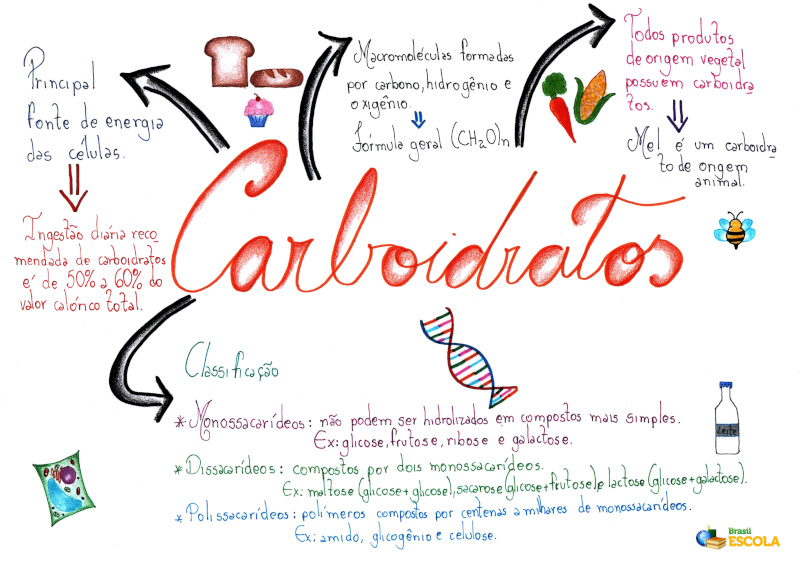 Principal
fonte de energia
das células.
Ingestão diária reco
mendada de carboidratos
é de 50% a 60% do
valor calórico total.
Macromoléculas formadas
por carbono, hidrogênio e
oxigênio.
Fórmula geral (CH2O)n
Todos produtos
de origem vegetal
possuem carboidra
tos.
Mel é um carboidra
to de origem
animal.
Carboidratos
Classificação
* Monossacarídeos: não podem ser hidrolizados em compostos mais simples.
Ex: glicose, frutose, ribose e galactose.
* Dissacarídeos: compostos por dois monossacarídeos.
Ex: maltose (glicose+glicose), sacarose (glicose+frutose), e lactose (glicose+galactose).
* Polissacarídeos: polímeros compostos por centenas a milhares de monossacarídeos.
Ex: amido, glicogênio e celulose.
Leite
Brasil
ESCOLA